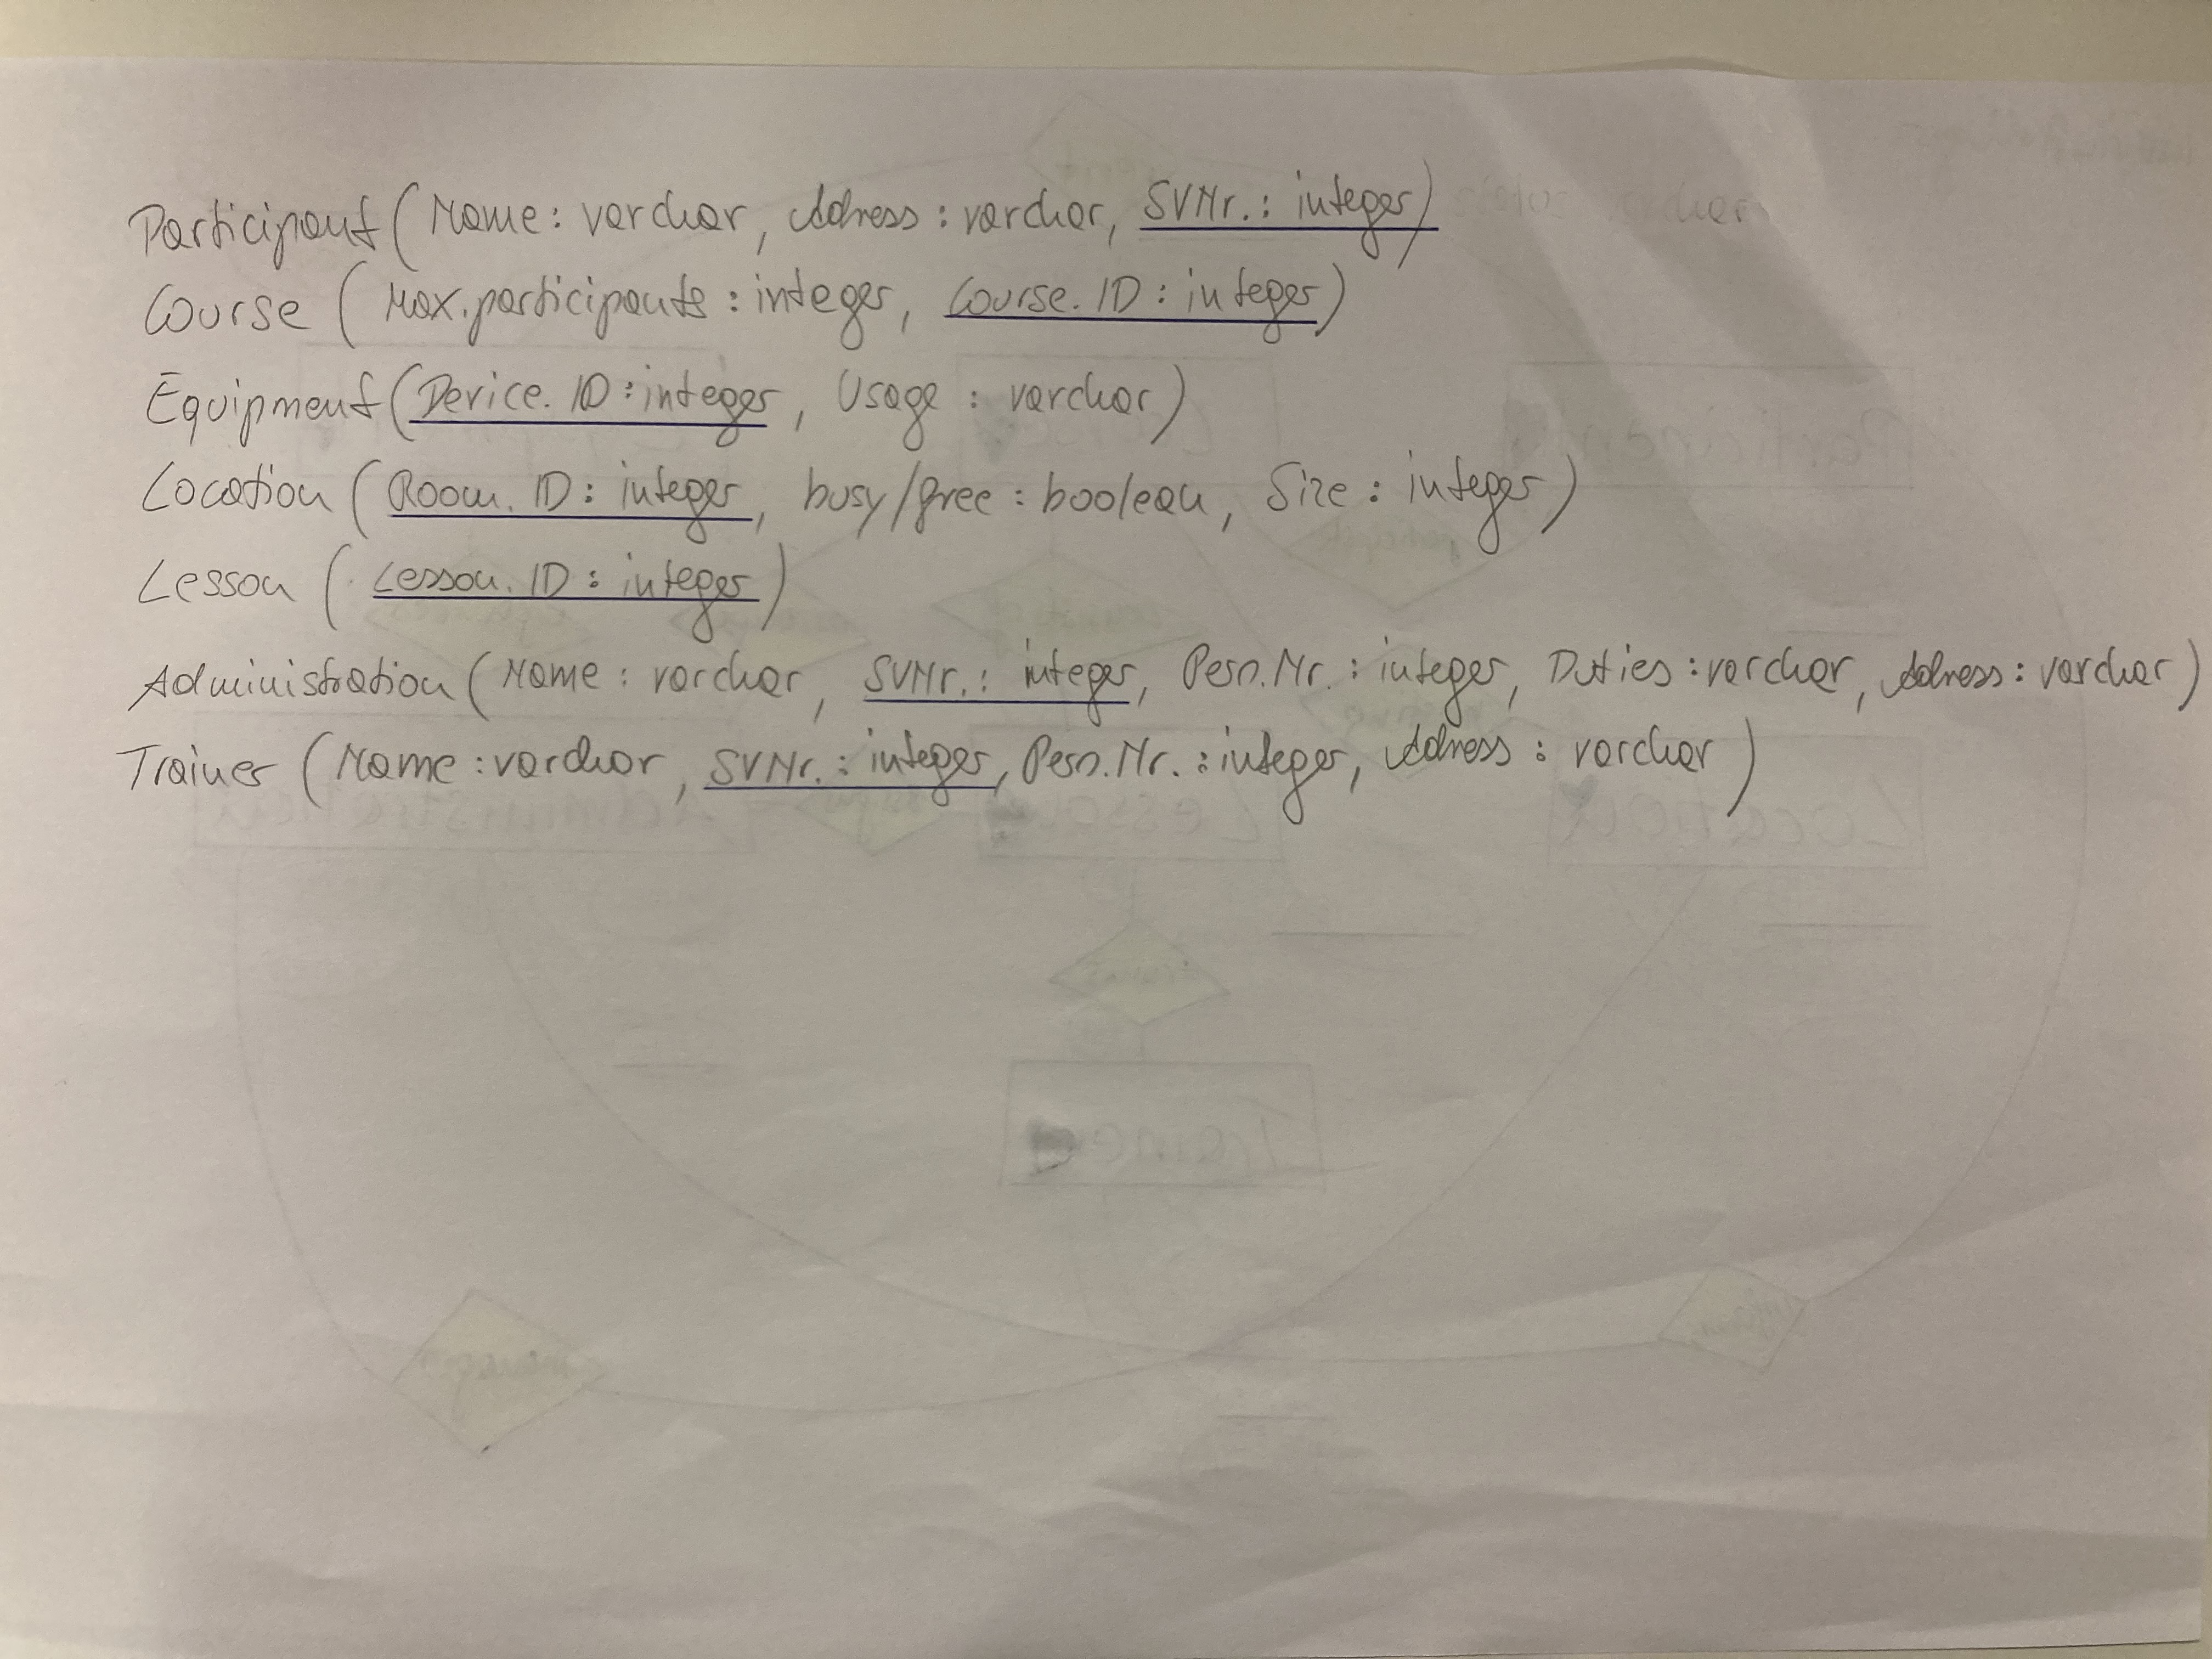 Participant (Name : varchar, Address : varchar, SVNr. : integer)
Course (Max.participants : integer, Course.ID : integer)
Equipment (Device.ID : integer, Usage : varchar)
Location (Room.ID : integer, busy/free : boolean, Size : integer)
Lesson (Lesson.ID : integer)
Administration (Name : varchar, SVNr. : integer, Persn.Nr. : integer, Duties : varchar, Address : varchar)
Trainer (Name : varchar, SVNr. : integer, Persn.Nr. : integer, Address : varchar)